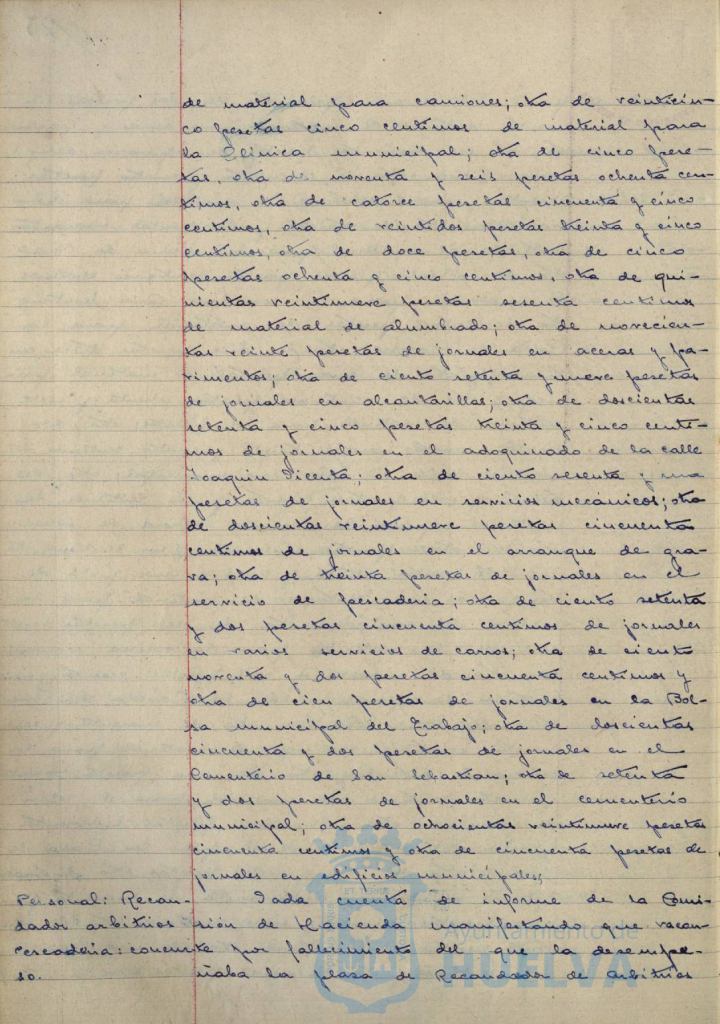 de material para camiones; otra de veinticin-
co pesetas cinco centimos de material para
la Clinica municipal; otra de cinco pese-
tas, otra de noventa y seis pesetas ochenta cen-
timos, otra de catorce pesetas cincuenta y cinco
centimos, otra de veintidos pesetas treinta y cinco
centimos, otra de doce pesetas, otra de cinco
pesetas ochenta y cinco centimos, otra de qui-
nientas veintinueve pesetas sesenta centimos
de material de alumbrado; otra de novecien-
tas veinte pesetas de jornales en aceras y pa-
vimentos; otra de ciento setenta y nueve pesetas
de jornales en alcantarillas; otra de doscientas
setenta y cinco pesetas treinta y cinco centi-
mos de jornales en el adoquinado de la calle
Joaquin Dicenta; otra de ciento sesenta y una
pesetas de jornales en servicios mecánicos; otra
de doscientas veintinueve pesetas cincuenta
centimos de jornales en el arranque de gra-
va; otra de treinta pesetas de jornales en el
servicio de pescaderia; otra de ciento setenta
y dos pesetas cincuenta centimos de jornales
en varios servicios de carros; otra de ciento
noventa y dos pesetas cincuenta centimos y
otra de cien pesetas de jornales en la Bol-
sa municipal del Trabajo; otra de doscientas
cincuenta y dos pesetas de jornales en el
Cementerio de San Sebastian; otra de setenta
y dos pesetas de jornales en el cementerio
municipal; otra de ochocientas veintinueve pesetas
cincuenta centimos y otra de cincuenta pesetas de
jornales en edificios municipales.
Personal: Recau-
dador arbitrios
Pescaderia: concur-
so.
Dada cuenta de informe de la Comi-
sión de Hacienda manifestando que vacan-
te por fallecimiento del que la desempe-
ñaba la plaza de Recaudador de arbitrios
Ayuntamiento de
HUELVA